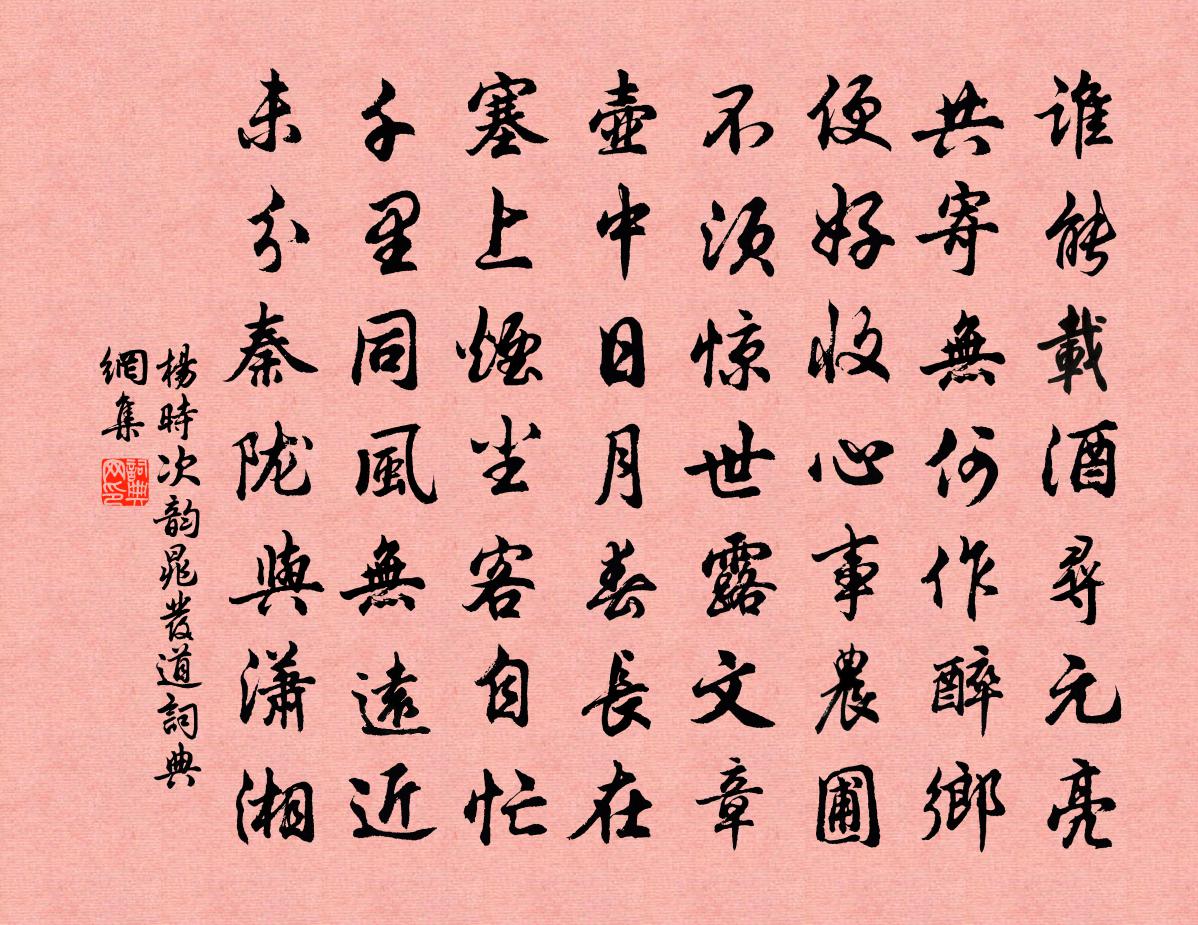 谁能載酒尋元亮
共寄無何作醉鄉
便好收心事農圃
不须惊世露文章
壺中日月春長在
塞上煙尘客自忙
千里同風無遠近
未分秦陇與潇湘
楊時次韵晁發道詞典
網集
詞典
网印